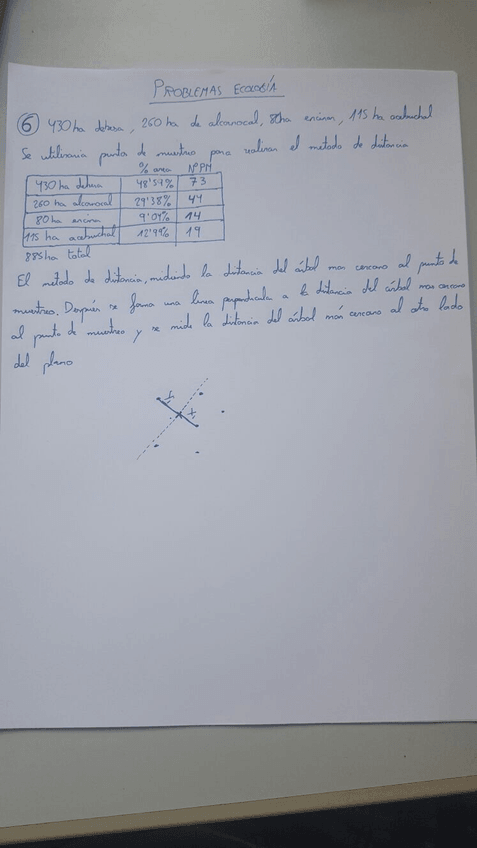 PROBLEMAS ECOLOGÍA
6 430 ha dehesa, 260 ha de alcornocal, 80 ha encinar, 115 ha acebuchal
Se utilizaria puntos de muestreo para realizar el metodo de distancia
% area NºPM
430 ha dehesa 48'59% 73
260 ha alcornocal 29'38% 44
80 ha encina 9'04% 14
115 ha acebuchal 12'99% 19
885 ha total
El metodo de distancia, midiendo la distancia del árbol mas cercano al punto de
muestreo. Después se forma una linea perpendicular a la distancia del árbol mas cercano
al punto de muestreo y se mide la distancia del árbol más cercano al otro lado
del plano